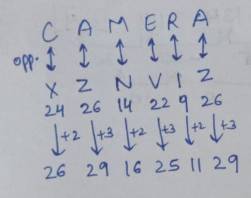 C A M E R A
opp. ↕ ↕ ↕ ↕ ↕ ↕
X Z N V I Z
24 26 14 22 9 26
↓+2 ↓+3 ↓+2 ↓+3 ↓+2 ↓+3
26 29 16 25 11 29